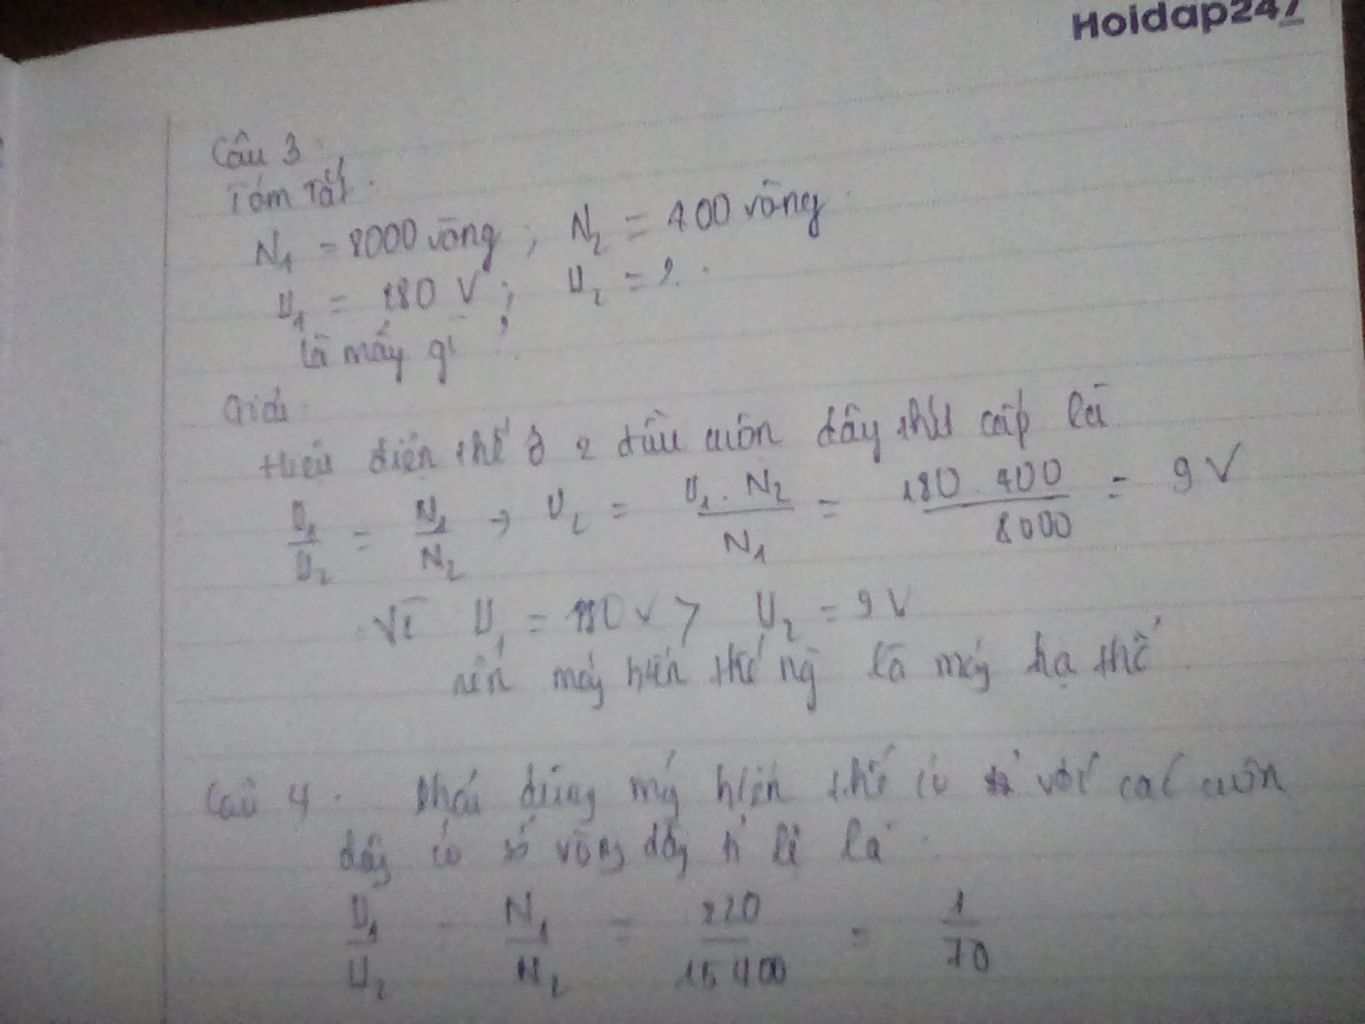 Hoidap247
Câu 3:
Tóm tắt.
N1 = 8000 vòng ; N2 = 400 vòng.
U1 = 180 V ; U2 = ?.
Là máy gì ?
Giải.
Hiệu điện thế ở 2 đầu cuôn dây thứ cấp là
U1/U2 = N1/N2 → U2 = U1 . N2 / N1 = 180 . 400 / 8000 = 9 V
Vì U1 = 180 V > U2 = 9 V
nên máy biến thế này là máy hạ thế
Câu 4. Phải dùng máy biến thế có với các cuôn
dây có số vòng dây tỉ lệ là
U1/U2 = N1/N2 = 220/15400 = 1/70